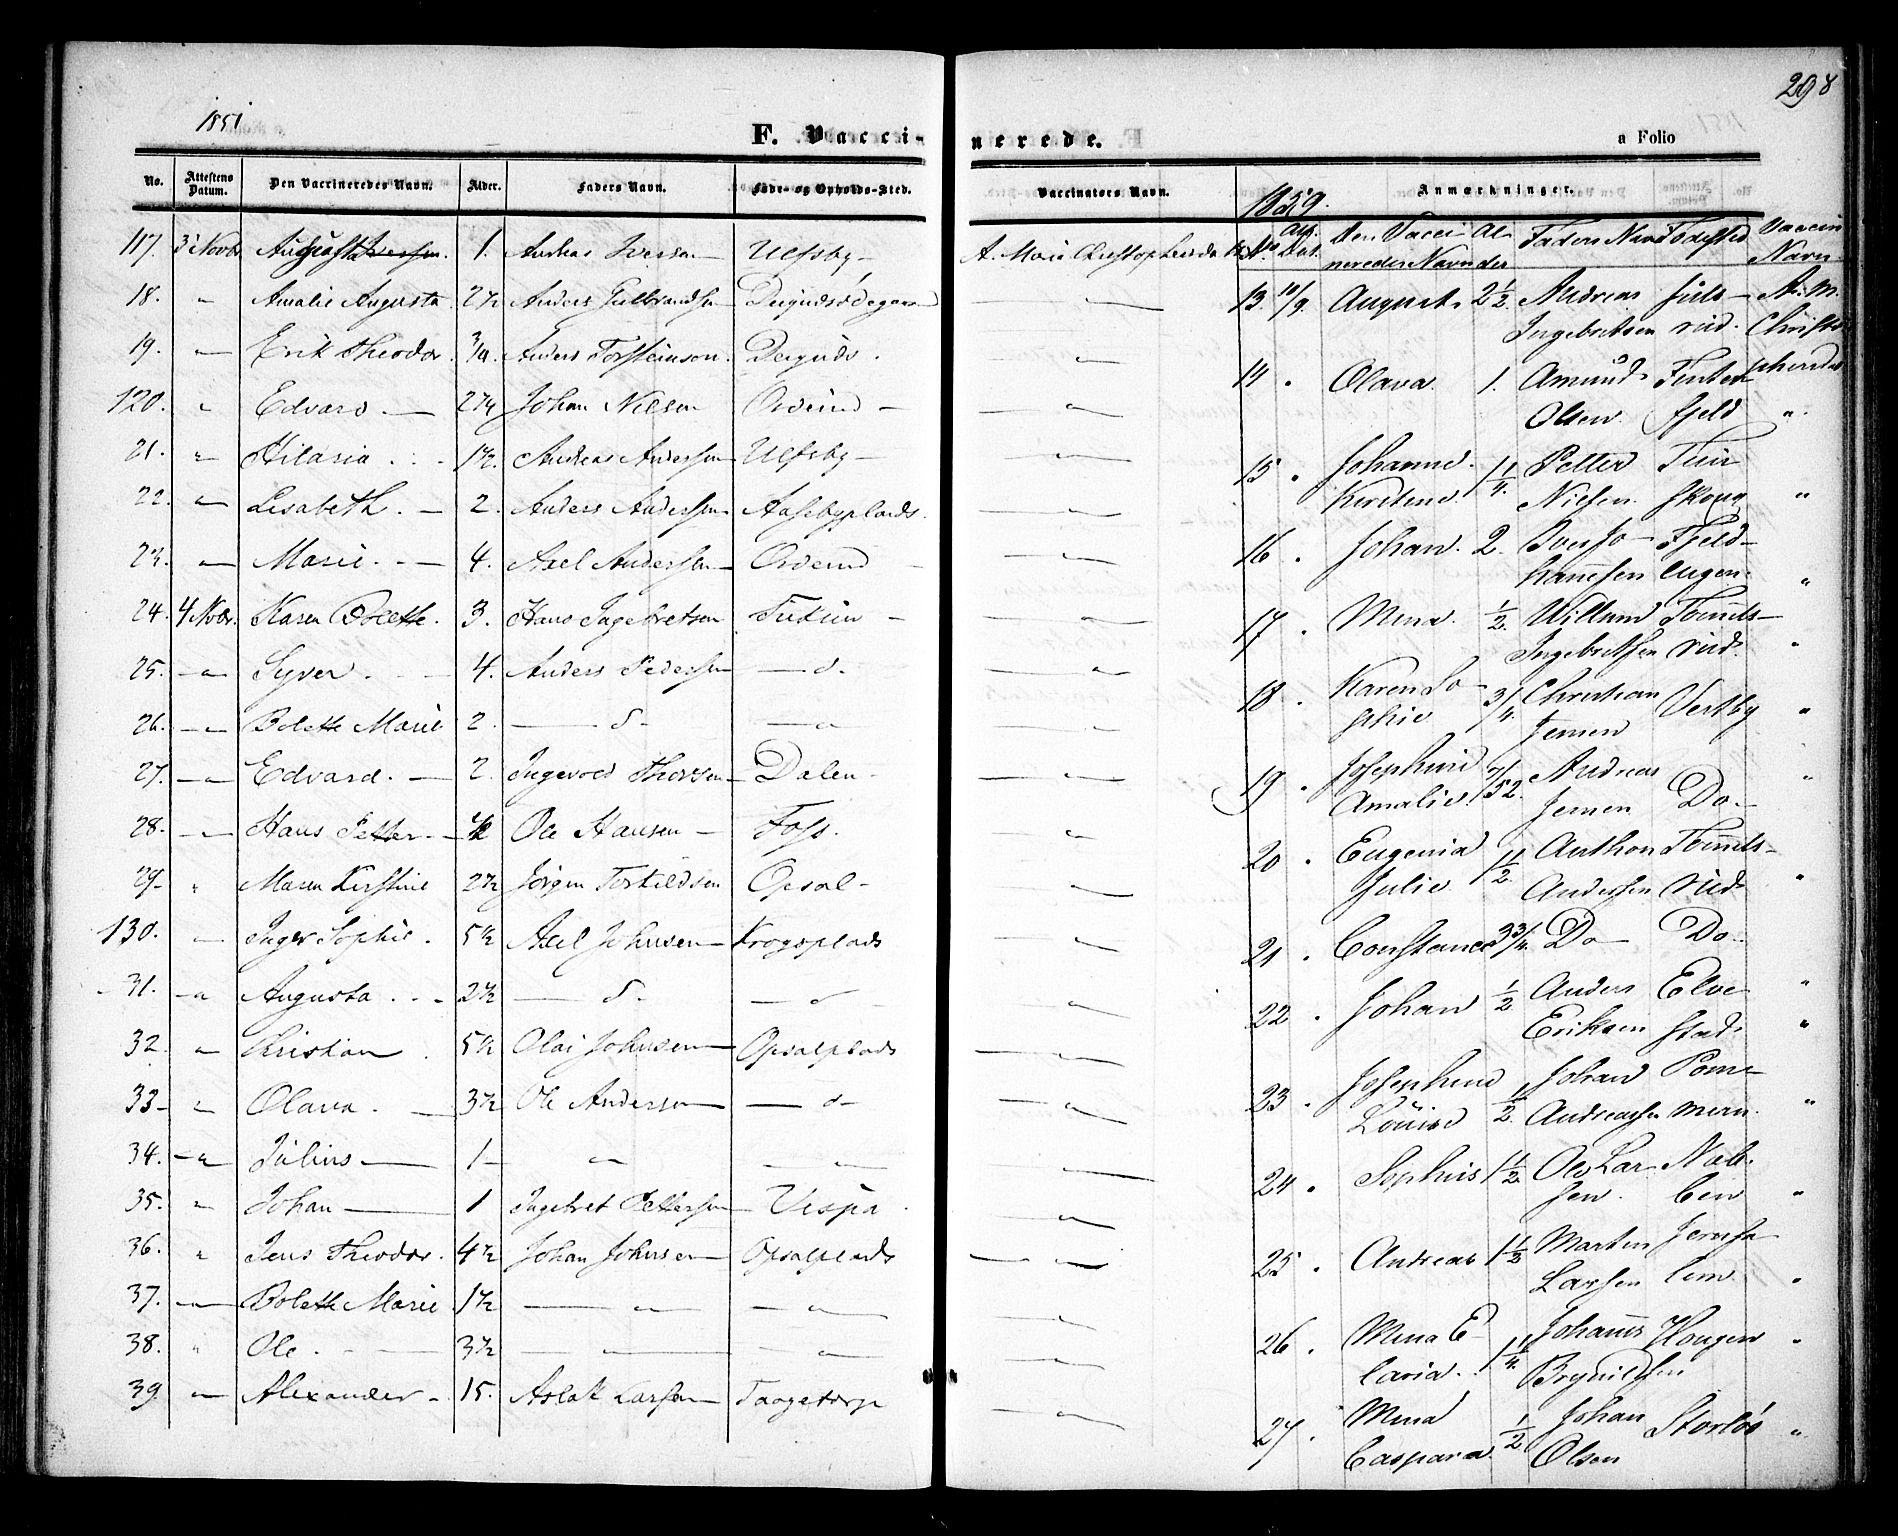 1851
298
F. Vacci-
nerede.
a Folio
No. Attestens Datum. Den Vaccineredes Navn. Alder. Faders Navn. Føde- og Opholds-Sted.
Vaccinators Navn. Anmærkninger.
117. 3 Novbr Augusta 1. Andreas Iversen — Ulfsby —
18. " Amalie Augusta 2½ Anders Gulbrandsen
19. — Erik Theodor. ¾ Anders Torsteinson.
120. " Edvard. — 2¼ Johan Nilsen
21. " Hilaria. 1½. Andreas Andersen Ulfsby —
22. " Lisabeth. — 2. Anders Andersen Aasebyplads.
23. " Marie. — 4. Axel Andersen —
24. 4 Novbr. Karen Bolette. 3. Hans Ingebretsen
25. — " Syver. 4. Anders Pedersen — d.
26. — " Bolette Marie 2. — d — — "
27. — " Edvard. — 2. Ingevold Thorsen — Dalen —
28. — " Hans Petter. — ½ Ole Hansen — Foss.
29. " Maren Kirstine 2½ Jörgen Torkildsen Opsal —
130. " Inger Sophie. 5½ Axel Johnsen — Krogsplads
31. — " Augusta. 2½ — d. — d
32. " Kristian. 5½ Olai Johnsen — Opsalplads
33 — " Olava. — 3½ Ole Andersen — d —
34. — " Julius — 1 — " — "
35. " Johan — 1 Ingebret Pettersen — Vispa.
36. " Jens Theodor. 4½ Johan Johnsen — Opsalplads
37. — " Bolette Marie 1½ — " — "
38. " Ole. — 3½ — " — "
39 " Alexander — 15. Aslak Larsen — Taagetorp
1859.
No Att. Dat. Den Vacci- Al- Faders Navn Fødested Vaccin
neredes Navn der Navn
13. 10/9. August. 2½ Andreas Juls — A. M.
Ingebritsen rud. Christo
14 " Olava. 1. Amund Tenter phersdr
Olsen. fjeld "
15 " Johanne. 1¼. Petter
Kirstine Nielsen. skoug "
16 " Johan. 2. Iver Jo- Fjeld-
hannesen eugen. "
17 " Mina. ½. Willam
Ingebritsen rud. "
18 " Karen So- ¾. Christian Vestby "
phie Jensen
19 " Josephine 7/52. Andreas "
Amalie. Jensen Do —
20 " Eugenia 1½. Anthon
Julie Andersen rud. "
21 " Constance 3¾. Do — Do.
22 " Johan ½. Anders Elve "
Eriksen stad. "
23 " Josephine ½. Johan Pom-
Louise Andreasen mern. "
24 " Sophus 1½. Ole Lar-
sen. ben "
25 " Andreas 1½ Martin Jerusa
Larsen lem "
26 " Mina E- 1¼. Johannes Hougen "
laria. Brynildsen
27 " Mina ½. Johan Storløs "
Caspara. Olsen